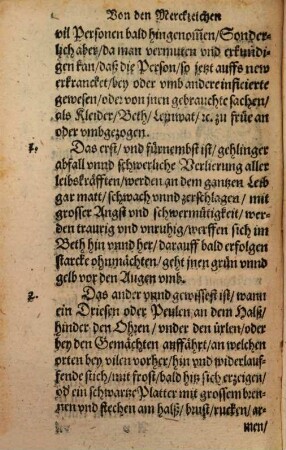 Von den Merckzeichen
vil Personen bald hingenom̃en/Sonder-
lich aber/da man vermuten vnd erkundi-
gen kan/daß die Person/so jetzt auffs new
erkrancket/bey oder vmb andere inficierte
gewesen/oder von jnen gebrauchte sachen/
als Kleider/Beth/Leinwat/ ꝛc. zu früe an
oder vmbgezogen.
1. Das erst/vnd fürnembst ist/gehlinger
abfall vnnd schwerliche Verlierung aller
leibskräfften/werden an dem gantzen Leib
gar matt/schwach vnnd zerschlagen/ mit
grosser Angst vnd schwermütigkeit/ wer-
den traurig vnd vnruhig/werffen sich im
Beth hin vnnd her/darauff bald erfolgen
starcke ohnmächten/geht jnen grün vnnd
gelb vor den Augen vmb.
2. Das ander vnnd gewissest ist/ wann
ein Driesen oder Peulen an dem Halß/
hinder den Ohren/vnder den ürlen/oder
bey den Gemächten auffährt/an welchen
orten bey vilen vorher/hin vnd widerlauf-
fende stich/mit frost/bald hitz sich erzeigen/
od̕ ein schwartze Platter mit grossem bren-
nen vnd stechen am halß/brust/rucken/ar-
men/